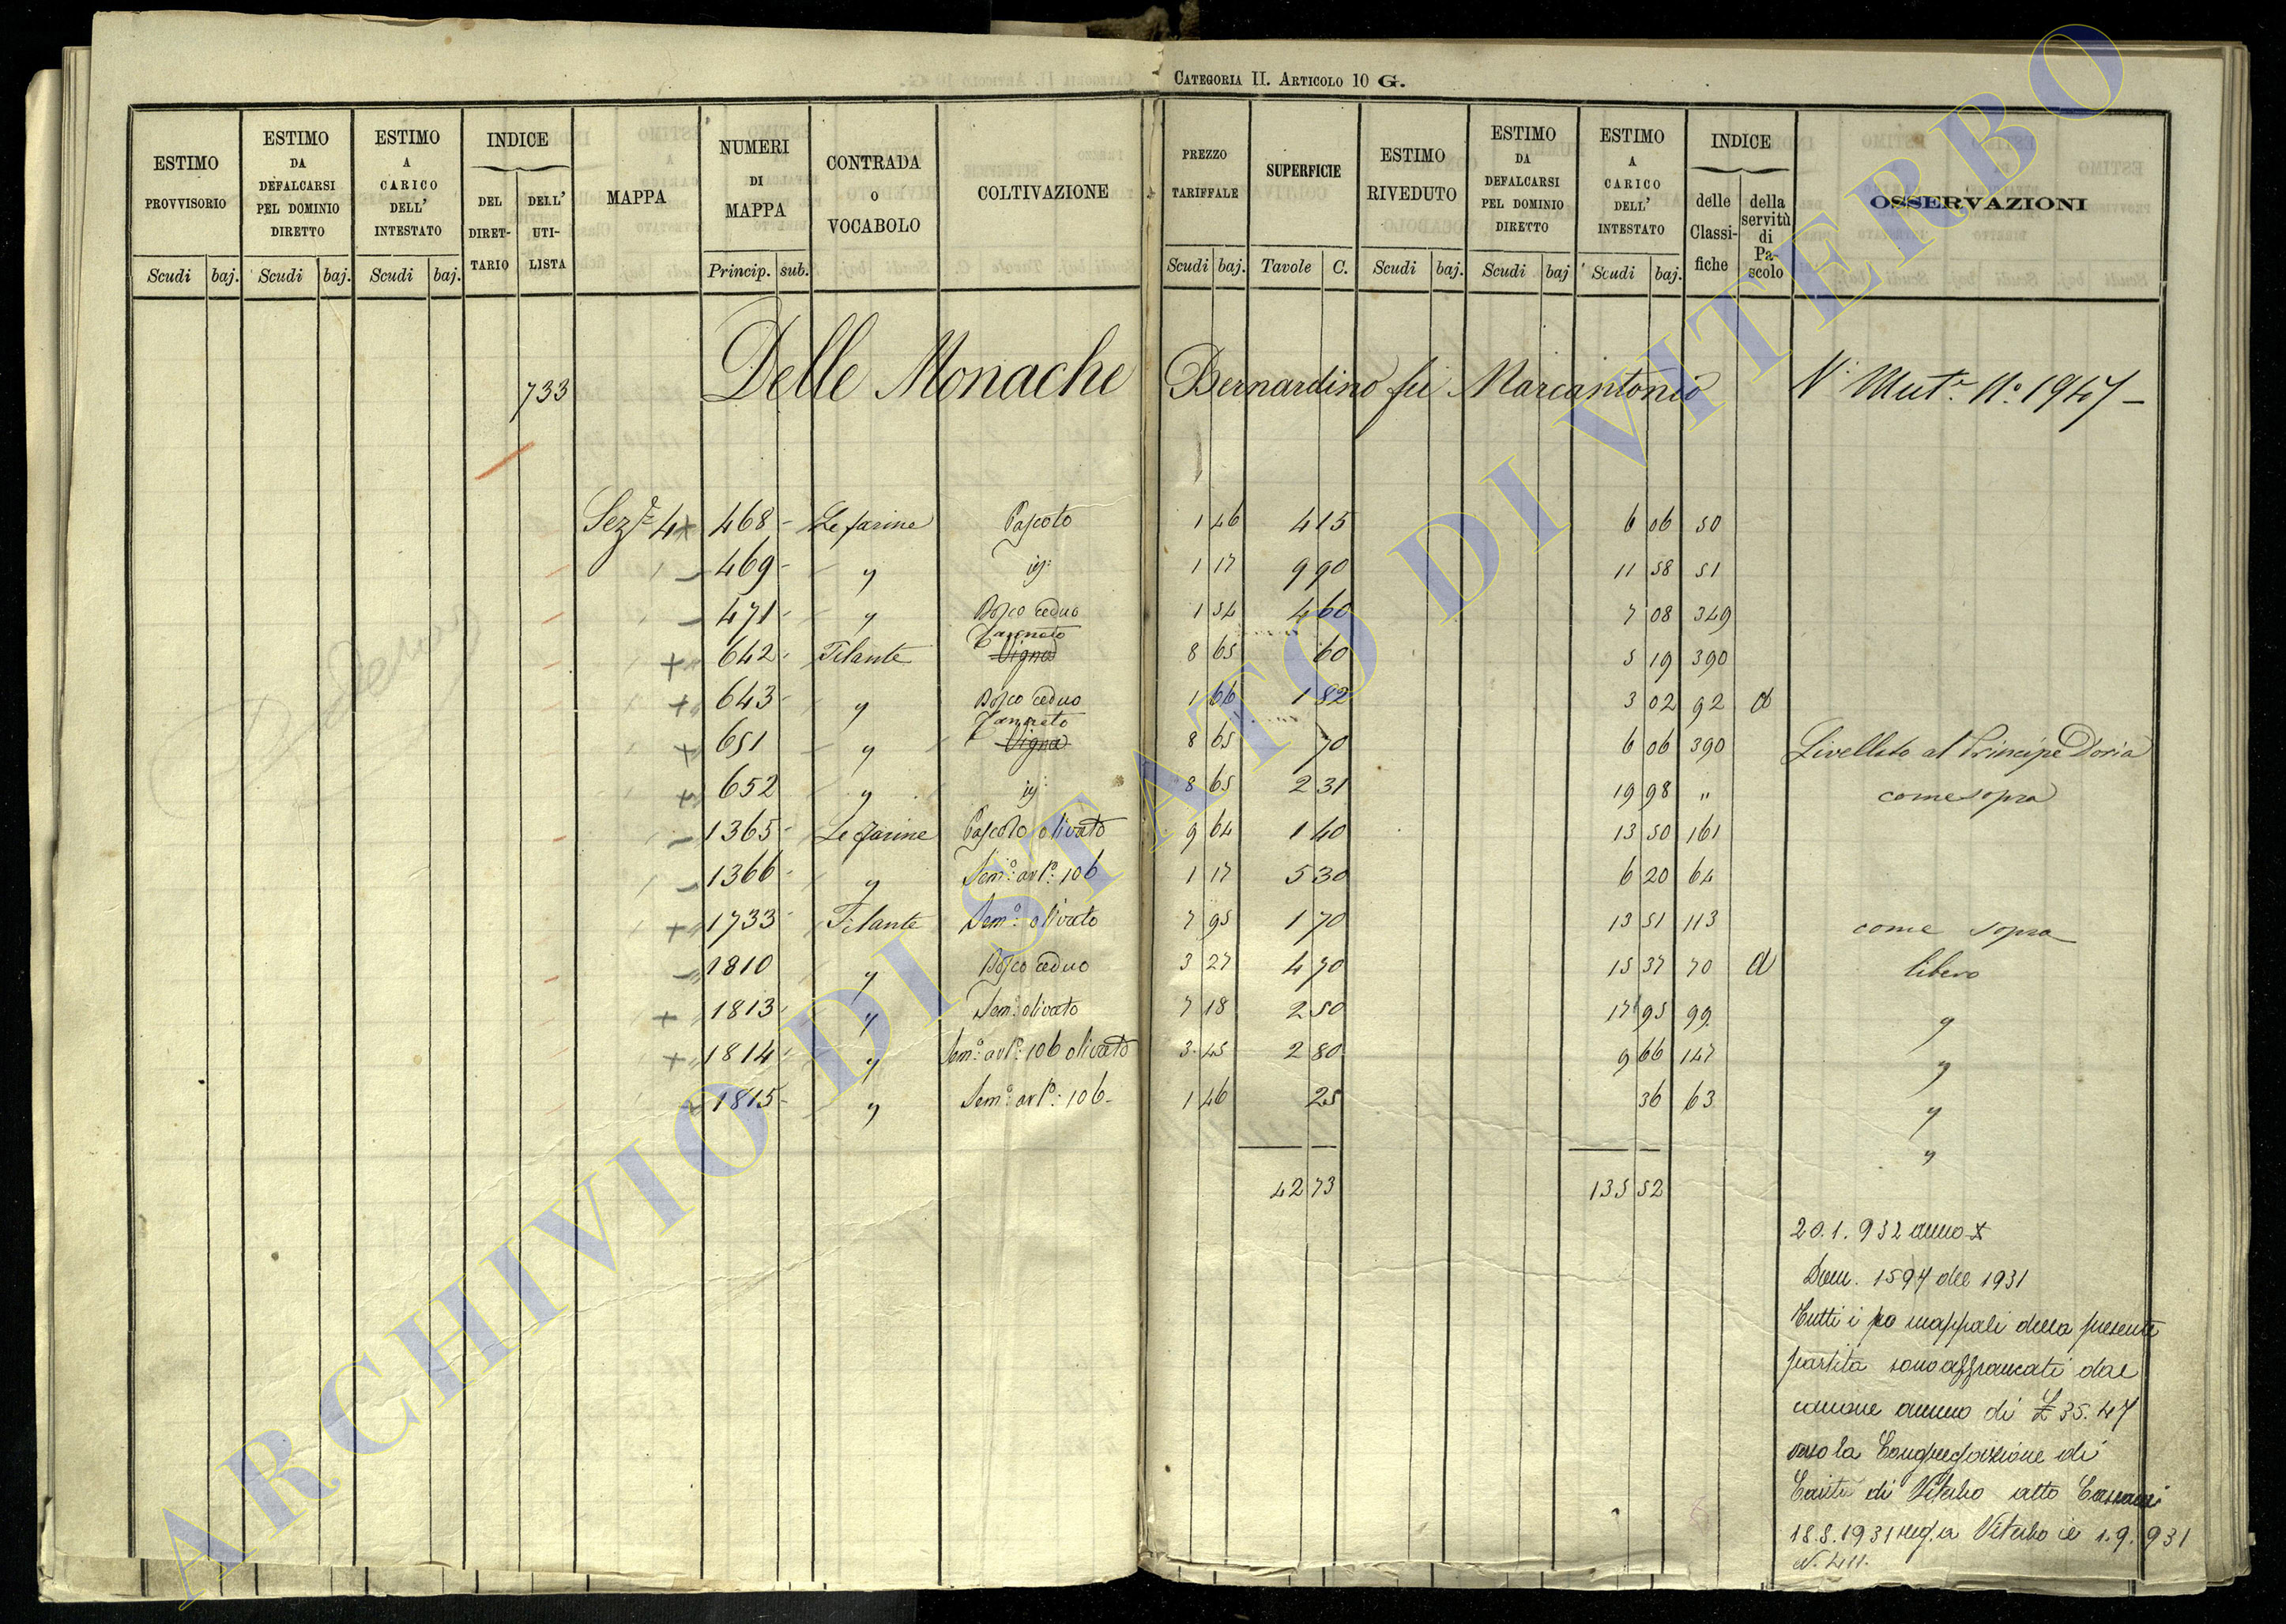 CATEGORIA II. ARTICOLO 10 G.
ESTIMO PROVVISORIO Scudi baj.
ESTIMO DA DEFALCARSI PEL DOMINIO DIRETTO Scudi baj.
ESTIMO A CARICO DELL' INTESTATO Scudi baj.
INDICE DEL DIRET-TARIO DELL' UTI-LISTA
MAPPA
NUMERI DI MAPPA Princip. sub.
CONTRADA O VOCABOLO
COLTIVAZIONE
PREZZO TARIFFALE Scudi baj.
SUPERFICIE Tavole C.
ESTIMO RIVEDUTO Scudi baj.
ESTIMO DA DEFALCARSI PEL DOMINIO DIRETTO Scudi baj
ESTIMO A CARICO DELL' INTESTATO Scudi baj.
INDICE delle Classi-fiche della servitù di Pa-scolo
OSSERVAZIONI
733 Delle Monache Bernardino fu Marcantonio N. Mut. N.° 1947
Sez.e 4 468 Le farine Pascolo 1 46 4 15 6 06 50
469 " id: 1 17 9 90 11 58 51
471 " Bosco ceduo 1 54 4 60 7 08 349
642 Filante Canneto Vigna 8 65 60 5 19 390
643 " Bosco ceduo 1 66 1 82 3 02 92 a
651 " Canneto Vigna 8 65 70 6 06 390 Livellato al Principe Doria
652 " id: 8 65 2 31 19 98 " come sopra
1365 Le farine Pascolo olivato 9 64 1 40 13 50 161
1366 " Sem.° arb.° 106 1 17 5 30 6 20 64
1733 Filante Sem.° olivato 7 95 1 70 13 51 113 come sopra
1810 " Bosco ceduo 3 27 4 70 15 37 70 a libero
1813 " Sem.° olivato 7 18 2 50 17 95 99 "
1814 " Sem.° arb.° 106 olivato 3 45 2 80 9 66 147 "
1815 " Sem.° arb.° 106 1 46 25 36 63 "
"
42 73 135 52
20.1.932 anno X
Dom. 1594 del 1931
Tutti i mappali della presente
partita sono affrancati dal
canone annuo di £ 35.47
verso la Congregazione di
Carità di Viterbo atto
18.8.1931 reg. a Viterbo il 1.9.931
N. 411.
ARCHIVIO DI STATO DI VITERBO